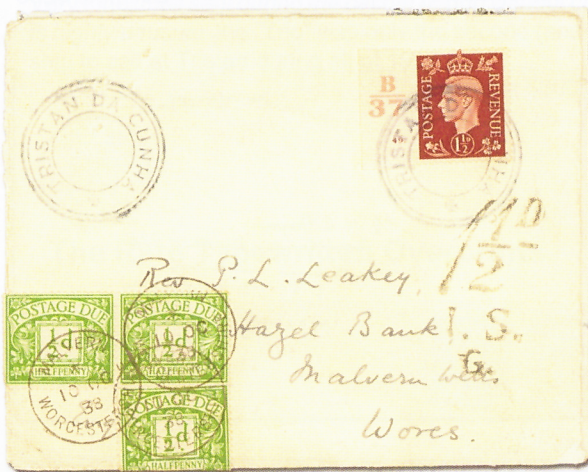 TRISTAN DA CUNHA
B
37
POSTAGE REVENUE
1½D
TRISTAN DA CUNHA
1½D
I.S.
Rev P. L. Leakey,
Hazel Bank
Malvern Wells
Worcs.
POSTAGE DUE
½d
HALFPENNY
POSTAGE DUE
½d
HALFPENNY
POSTAGE DUE
½d
HALFPENNY
MALVERN
10
38
WORCESTER